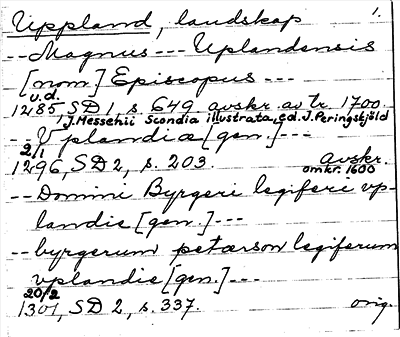 Uppland, landskap 1.
--Magnus --- Uplandensis
[nom.] Episcopus ---
u.d.
1285 SD1 s. 649 avskr. av tr. 1700.
i J. Messenii Scondia illustrata, ed. J. Peringskjöld
-- Vplandiæ [gen.] ---
2/1
1296, SD2, s. 203. avskr.
omkr. 1600
-- Domini Byrgeri legiferi vp-
landie [gen.] ---
-- byrgerum petærson legiferum
vplandie [gen.] ---
20/2
1301, SD 2, s. 337. orig.